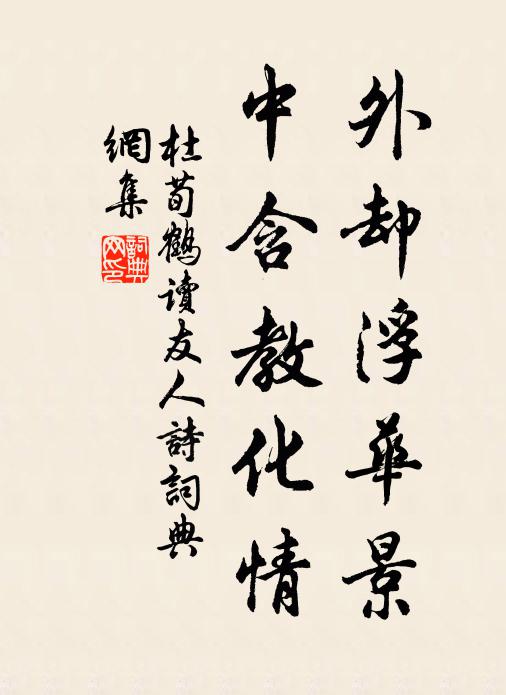 外却浮華景
中含教化情
杜荀鶴讀友人詩詞典
網集
詞典網印